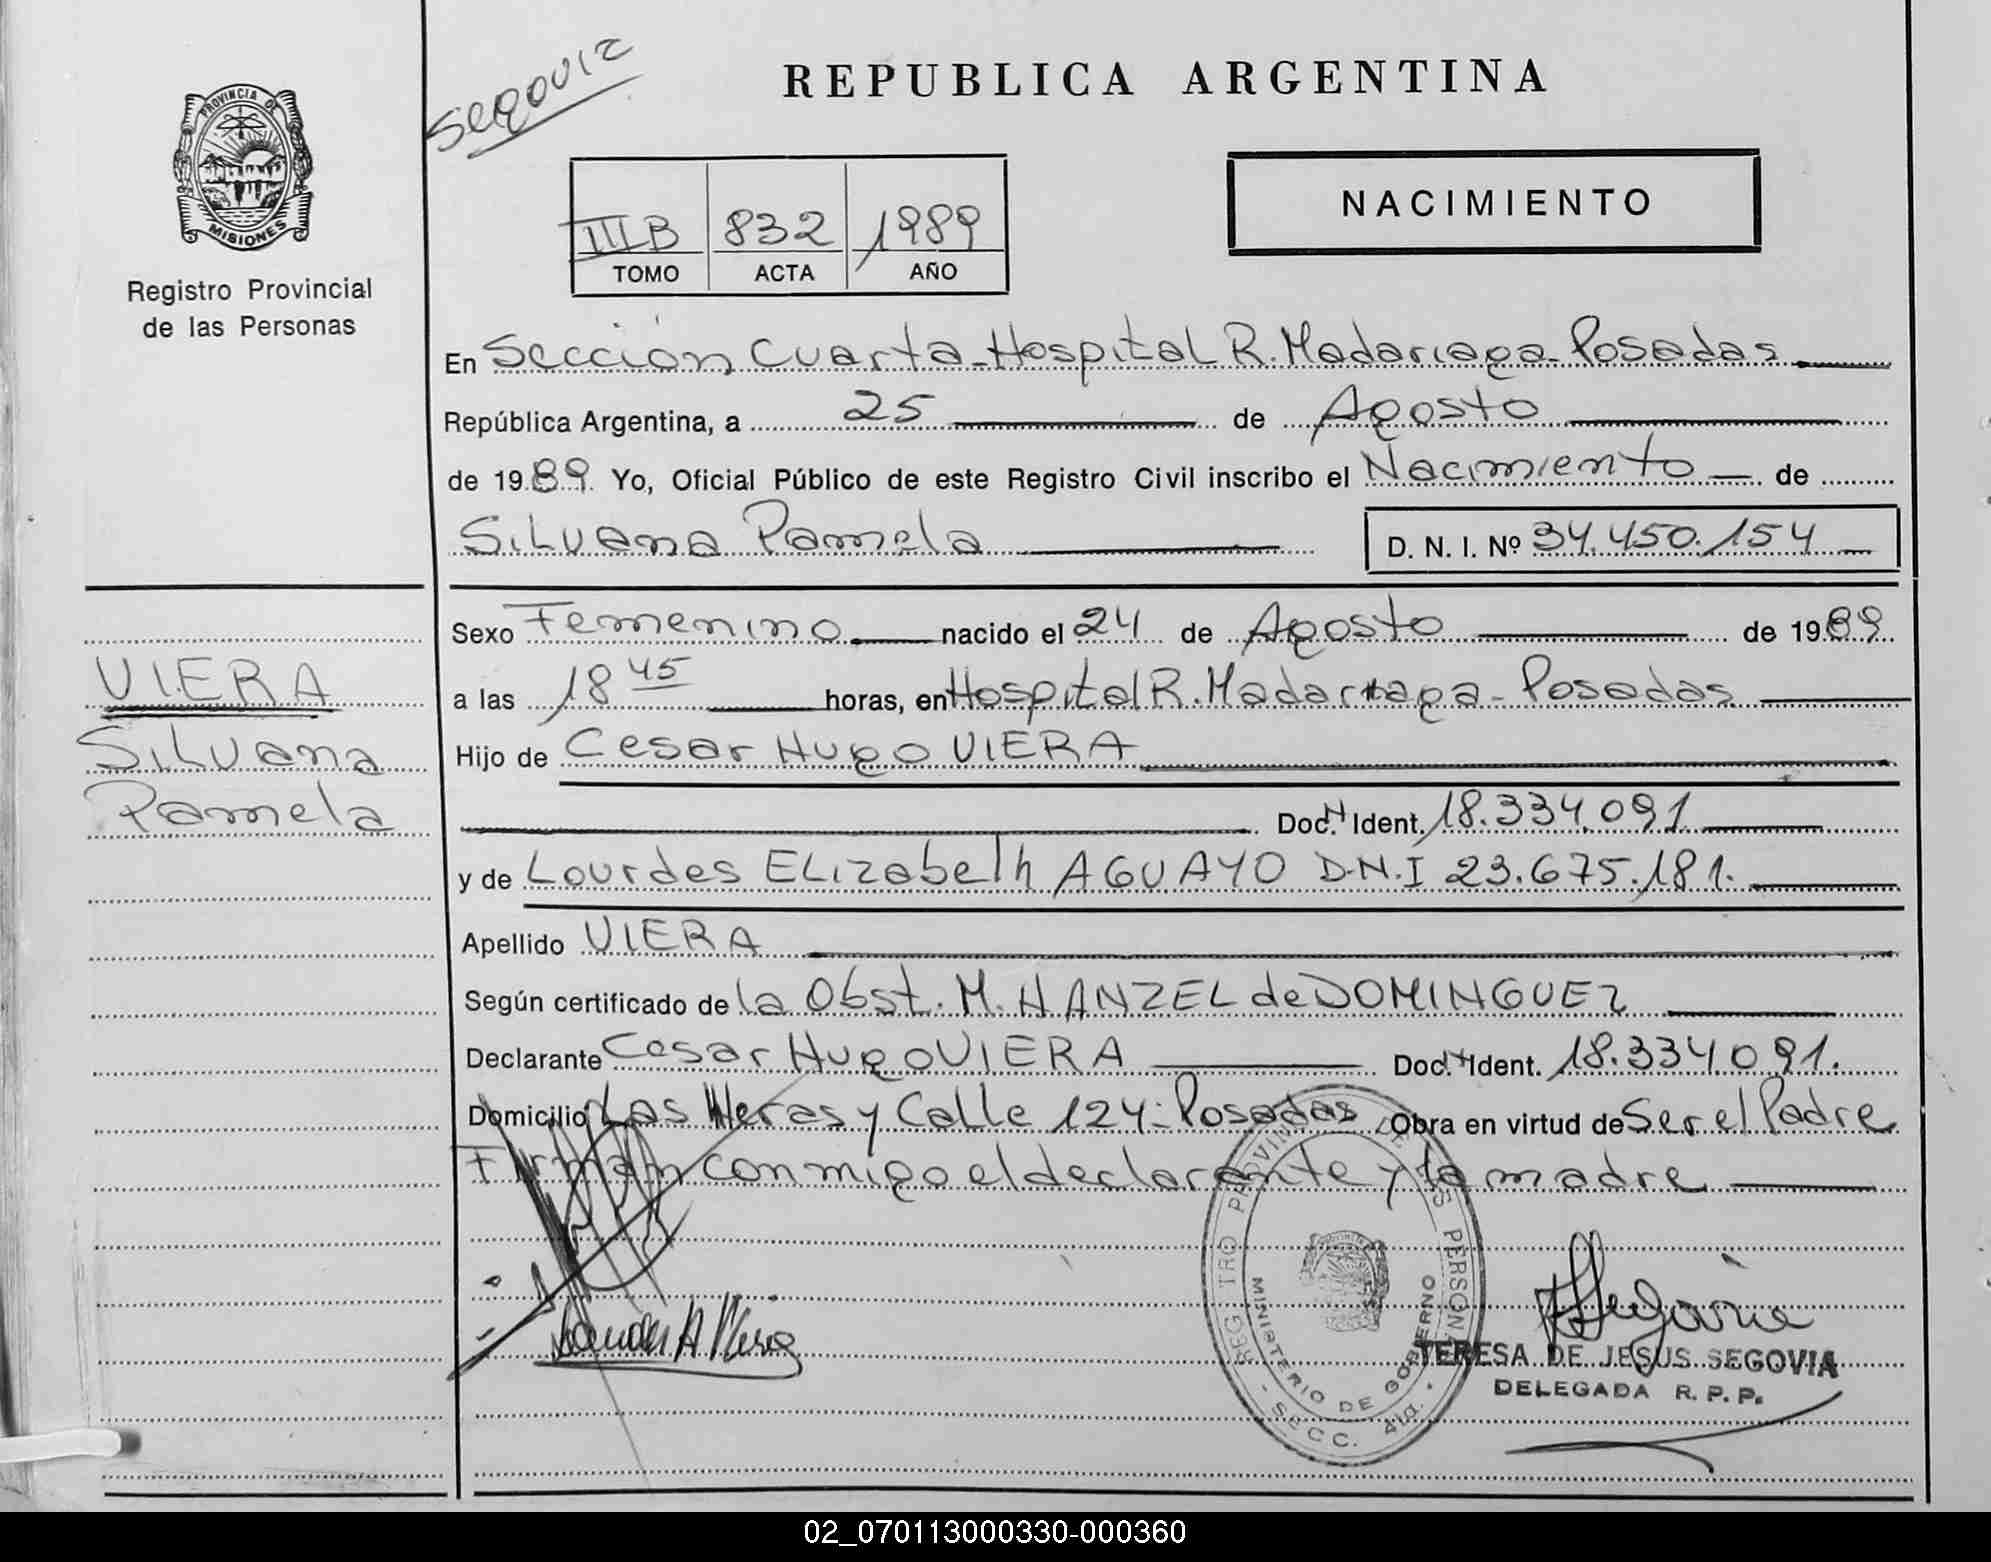 Segovia
REPUBLICA ARGENTINA
PROVINCIA DE
MISIONES
Registro Provincial
de las Personas
III B 832 1989
TOMO ACTA AÑO
NACIMIENTO
En Sección Cuarta - Hospital R. Madariaga - Posadas
República Argentina, a 25 de Agosto
de 1989. Yo, Oficial Público de este Registro Civil inscribo el Nacimiento de
Silvana Pamela D. N. I. Nº 34.450.154
Sexo Femenino nacido el 24 de Agosto de 1989
a las 18 45 horas, en Hospital R. Madariaga - Posadas
Hijo de Cesar Hugo VIERA
Doc. Ident. 18.334.091
y de Lourdes Elizabeth AGUAYO D.N.I 23.675.181.
Apellido VIERA
Según certificado de la Obst. M. HANZEL de DOMINGUEZ
Declarante Cesar Hugo VIERA Doc. Ident. 18.334.091.
Domicilio Las Heras y Calle 124 - Posadas Obra en virtud de Ser el Padre
Firman conmigo el declarante y la madre
VIERA
Silvana
Pamela
REGISTRO PROVINCIAL DE LAS PERSONAS
MINISTERIO DE GOBIERNO
- SECC. 4ta. -
Segovia
TERESA DE JESUS SEGOVIA
DELEGADA R. P. P.
02_070113000330-000360